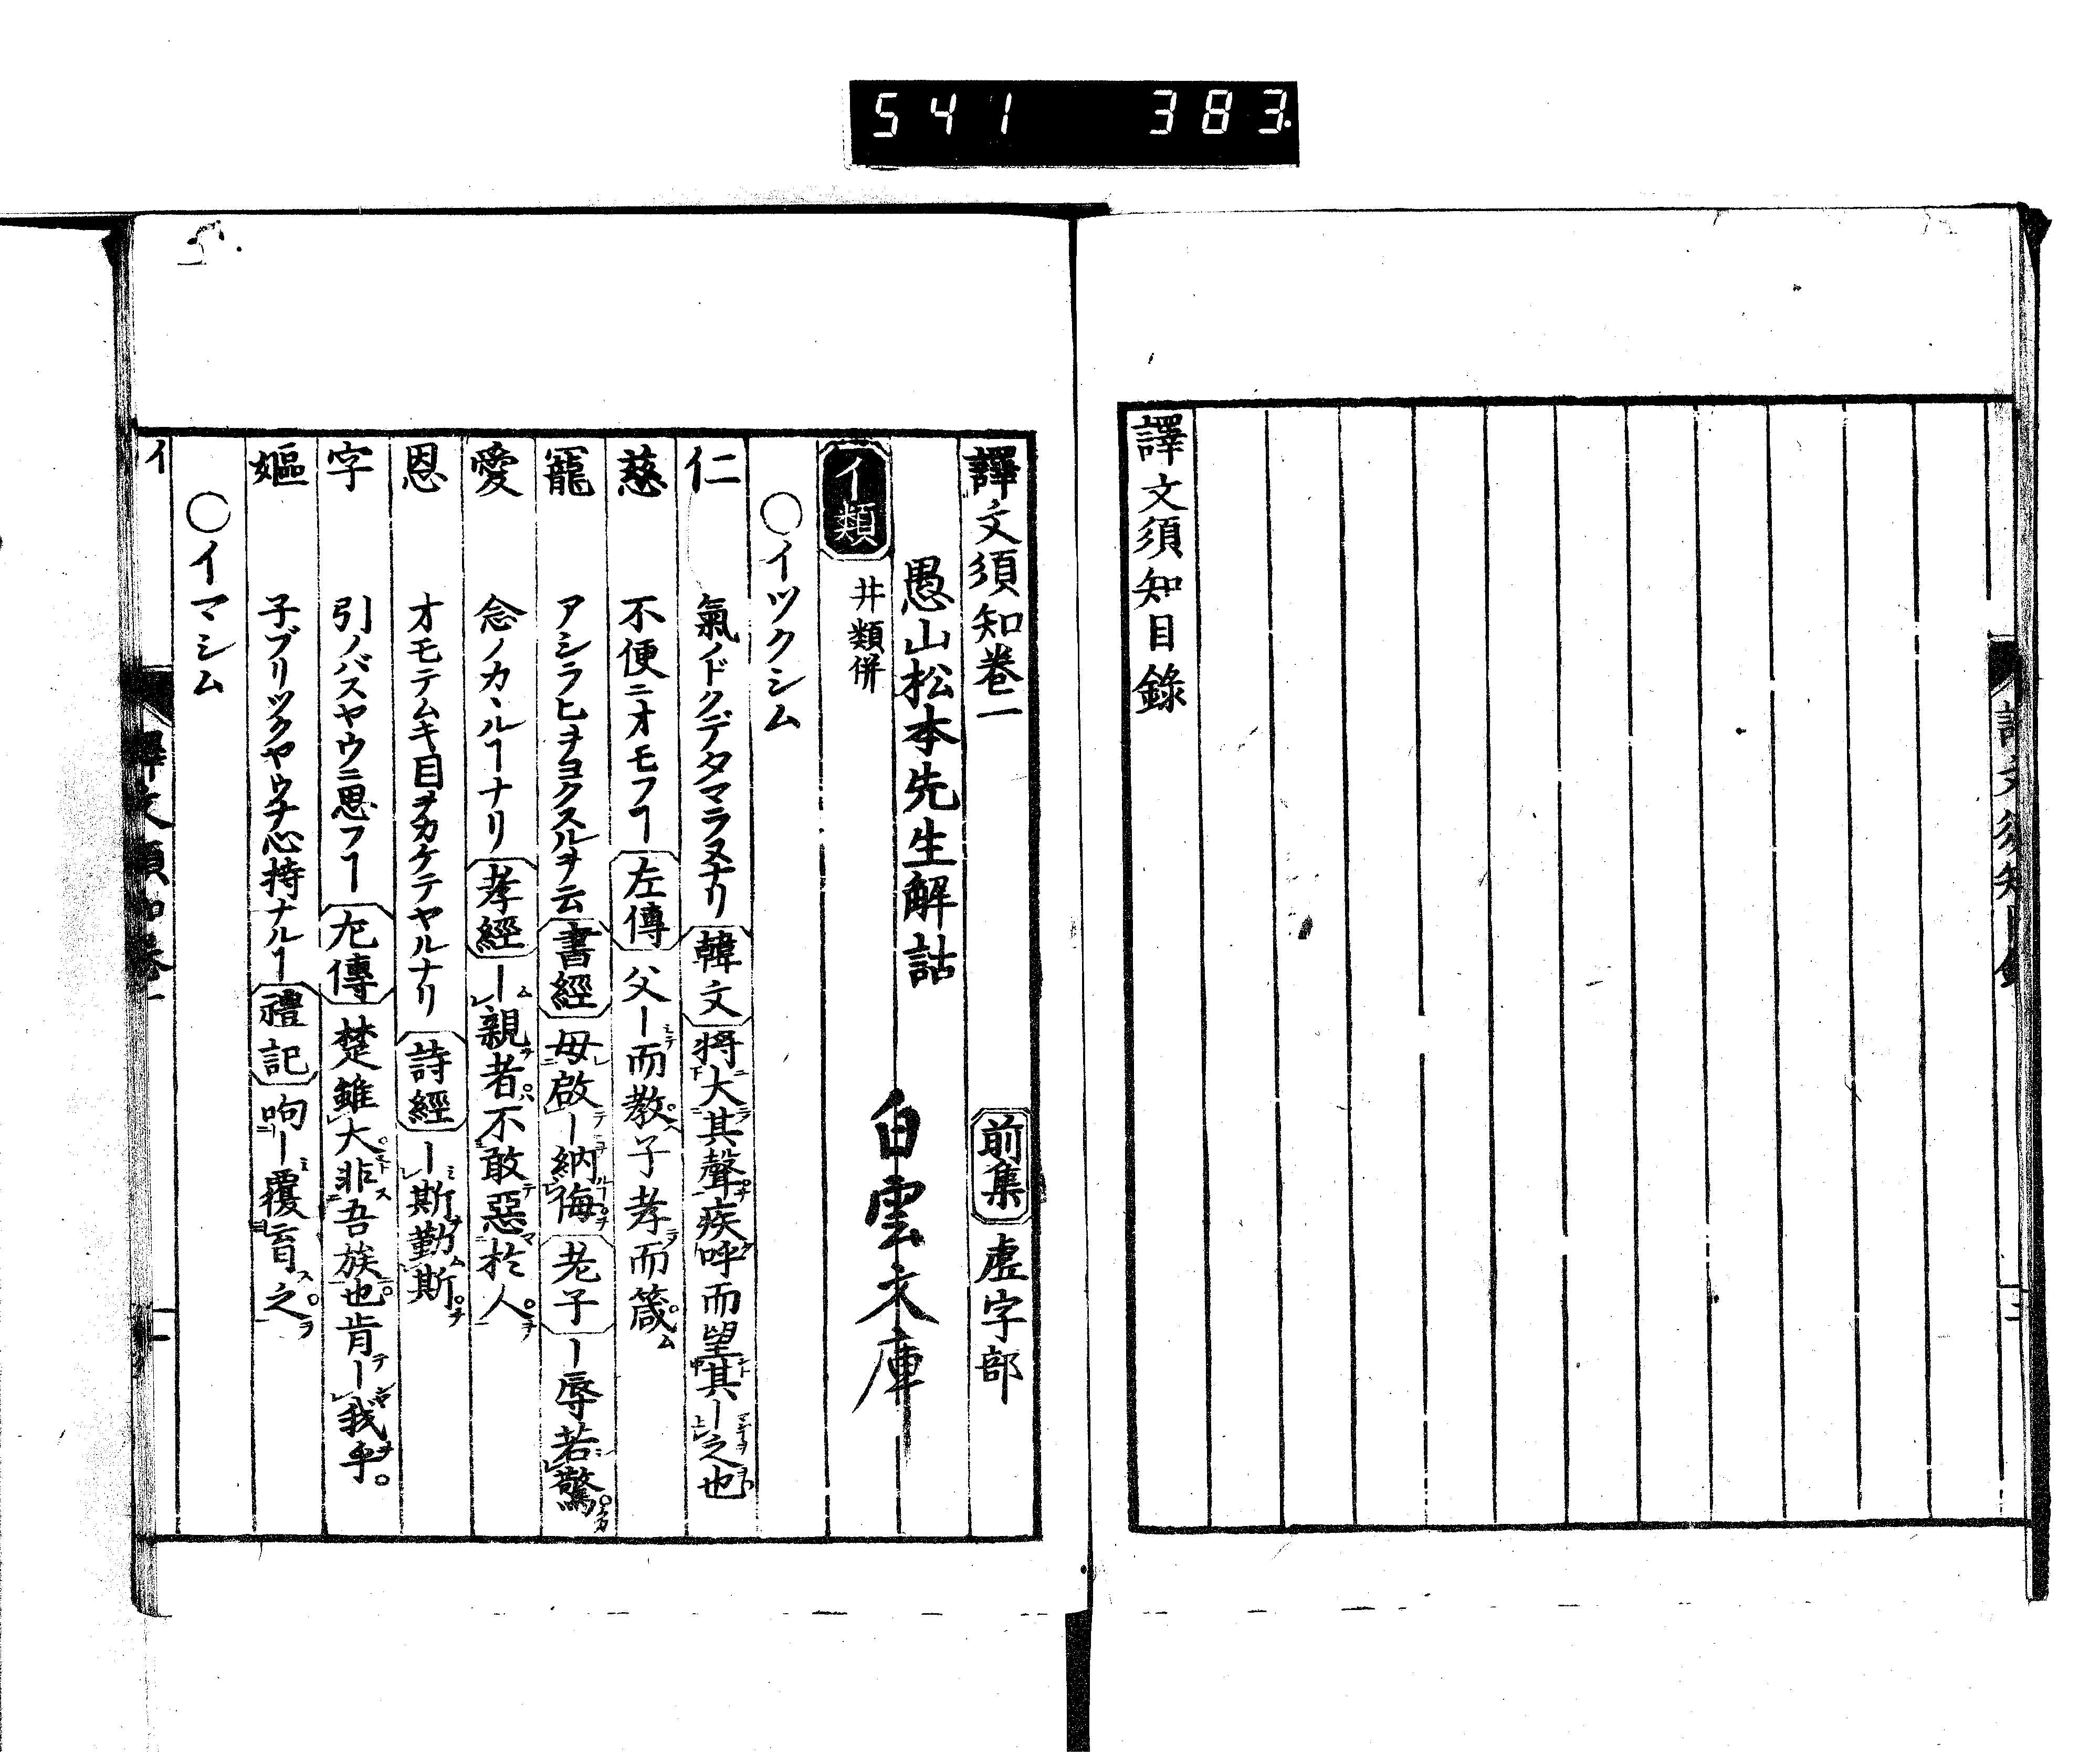 541 383.
譯文須知目錄
譯文須知卷一 前集 虛字部
愚山松本先生解詁
白雲文庫
イ類 井類併
○イツクシム
仁 氣ノドクデタマラヌナリ 韓文 將大其聲疾呼而望其ー之也
慈 不便ニオモフヿ 左傳 父ー而教子孝而箴
寵 アシラヒヲヨクスルヲ云 書經 毋啟ー納侮 老子 ー辱若驚
愛 念ノカヽルヿナリ 孝經 ー親者不敢惡於人
恩 オモテムキ目ヲカケテヤルナリ 詩經 ー斯勤斯
字 引ノバスヤウニ思フヿ 左傳 楚雖大非吾族也肯ー我乎
嫗 子ブリツクヤウナ心持ナルヿ 禮記 呴ー覆育之
○イマシム
イ 譯文須知卷一 一